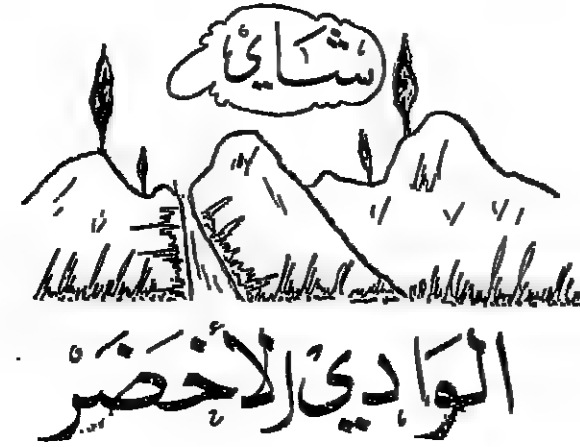 شاي
الوادي الأخضر